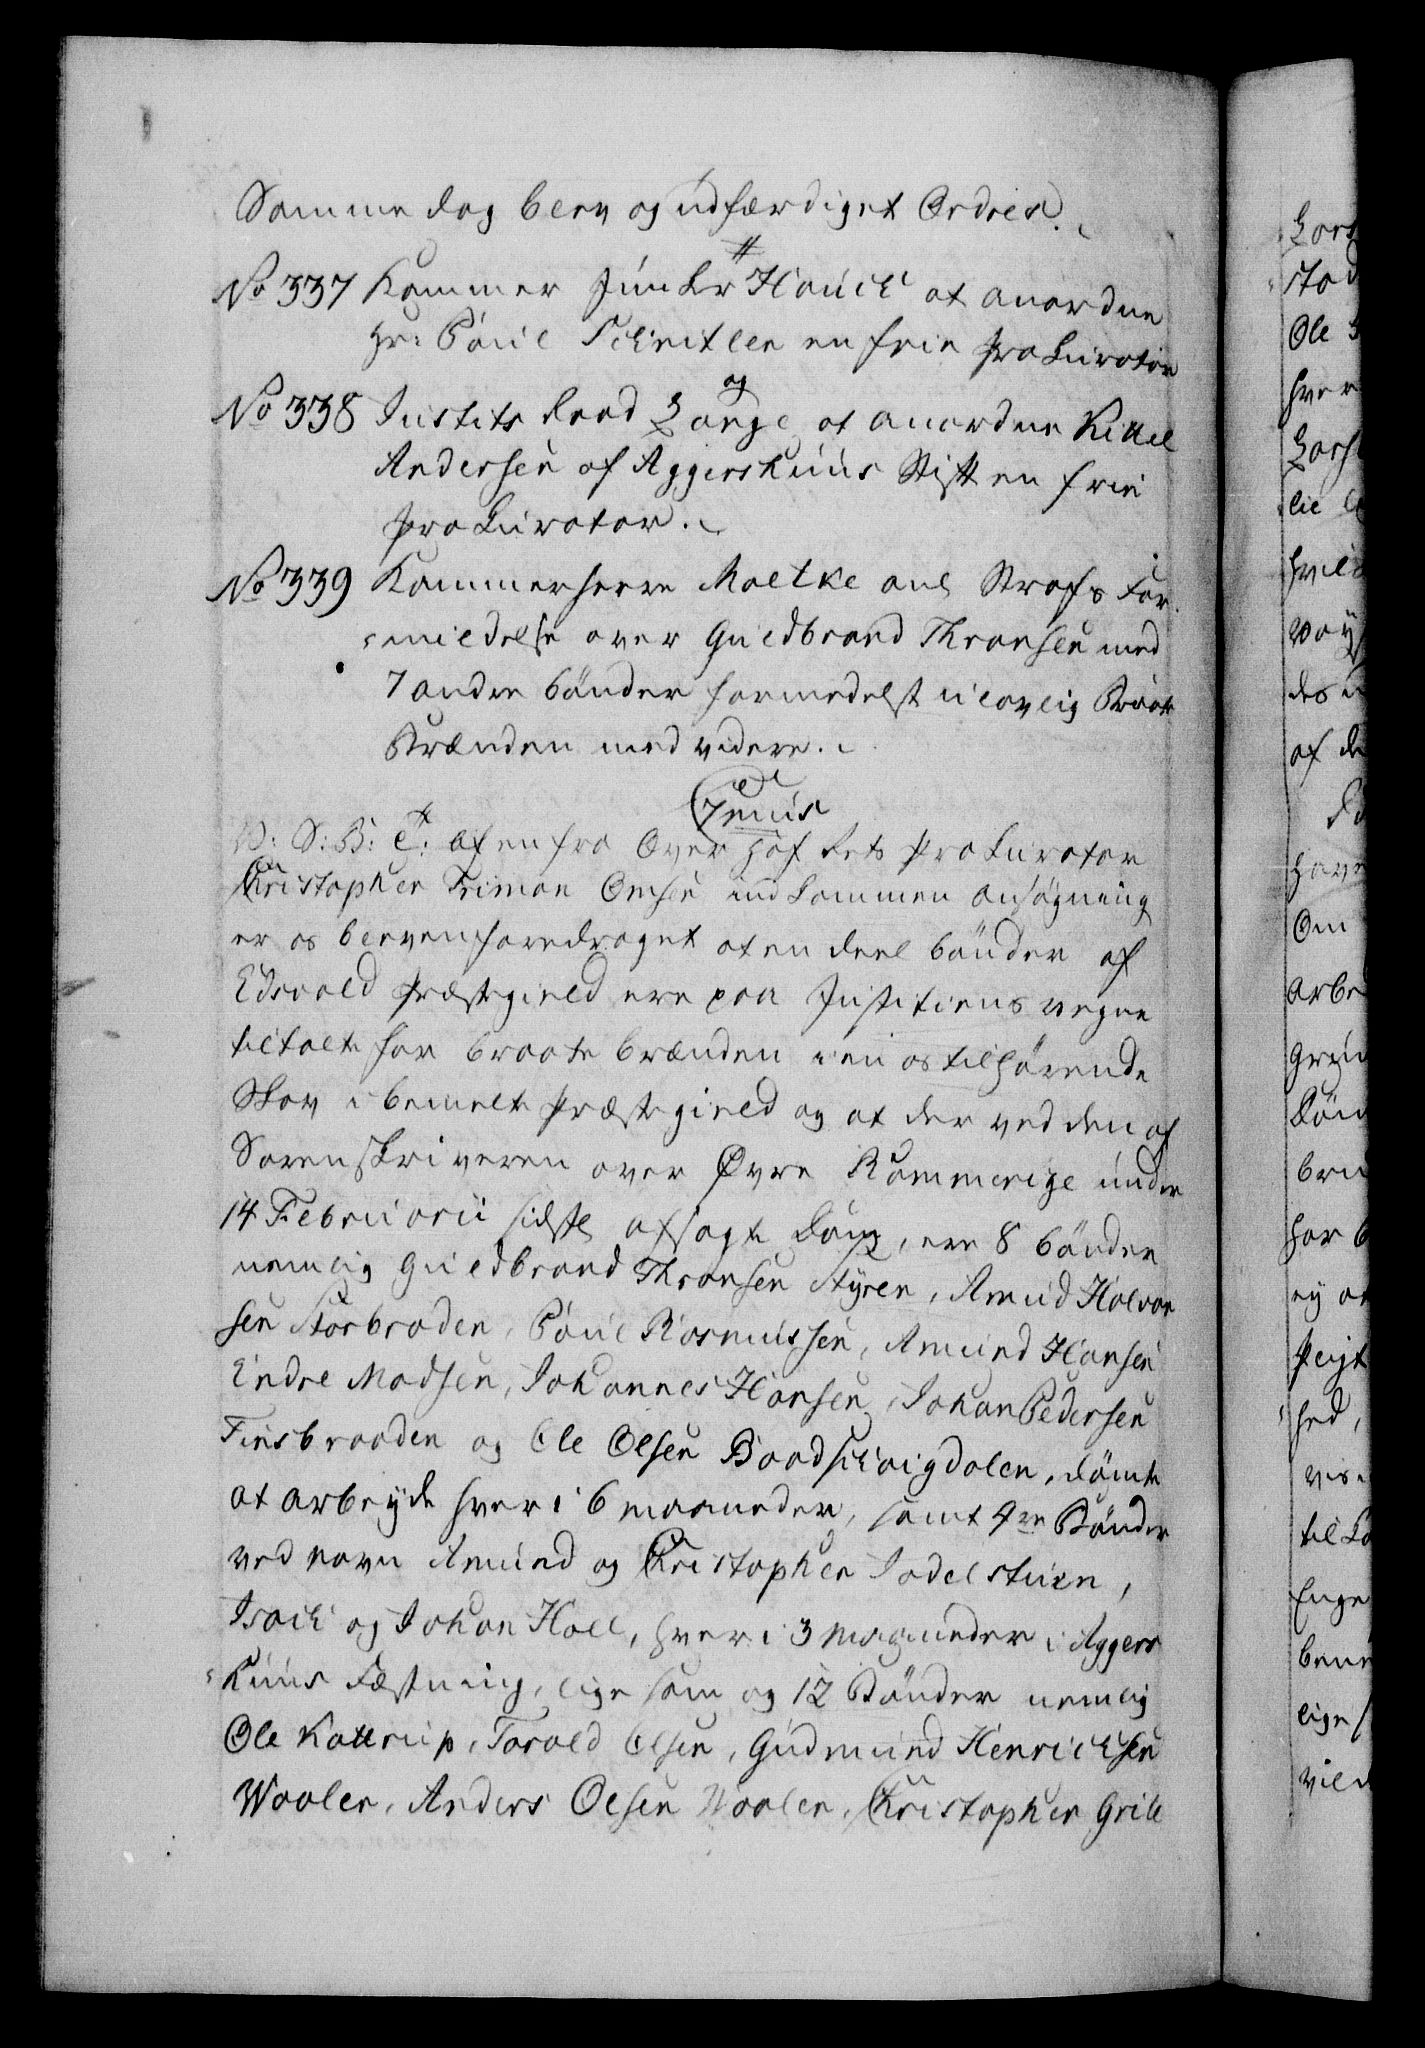 Samme dag blev og udfærdiget Ordres.
No 337 Kammer Junker Hauch at anordne
Hr: Poul Schnitler en frie Prokurator
No 338 Justits Raad Lange og at anordne Kittil
Andersen af Aggershuus Stift en frie
Prokurator.
No 339 Kammerherre Moltke anl Strafs For
mildelse over Guldbrand Thronsen med
7 andre bönder formedelst ulovlig Braate
Brænden med videre.
Tenus
V: S: B: T: Af en fra Over Hof Rets Prokurator
Christopher Friman Omsen indkommen ansøgning
er os bleven foredraget at en deel bönder af
Edsvold Præstegield ere paa Justitiens vegne
tiltalt for braate brænden i en os tilhörende
Skov i bemelte Præstegield og at der ved den af
Sorenskriveren over Øvre Rommerige under
14 Februarii sidstl afsagte Dom, ere 8 bönder
nemlig Guldbrand Thronsen Styren, Amud Halvor
sen Storbraden, Poul Rasmussen, Amund Hansen
Endre Madsen, Johannes Hansen, Johan Pedersen
Finsbraaden og Ole Olsen Baadschaigdalen, dömte
at arbeyde hver i 6 maaneder, samt 4re Bönder
ved navn Amund og Christopher Jødelstuen,
Isach og Johan Holl, hver i 3 maaneder i Aggers
huus Fæstning, lige som og 12 Bönder nemlig
Ole Kattrup, Torald Olsen, Gudmund Henrichsen
Woolen, Anders Olsen Woolen, Christopher Grill